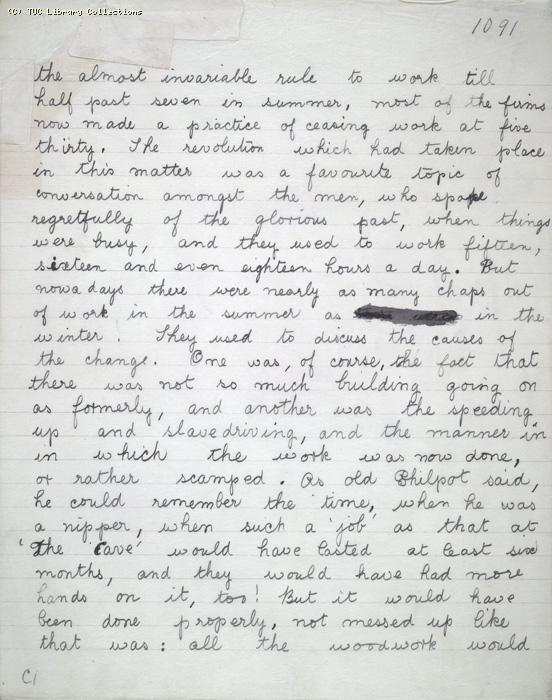 (c) TUC Library Collections
1091
the almost invariable rule to work till
half past seven in summer, most of the firms
now made a practice of ceasing work at five
thirty. The revolution which had taken place
in this matter was a favourite topic of
conversation amongst the men, who spoke
regretfully of the glorious past, when things
were busy, and they used to work fifteen,
sixteen and even eighteen hours a day. But
nowadays there were nearly as many chaps out
of work in the summer as in the
winter. They used to discuss the causes of
the change. One was, of course, the fact that
there was not so much building going on
as formerly, and another was the speeding
up and slavedriving, and the manner in
in which the work was now done,
or rather scamped. As old Philpot said,
he could remember the time, when he was
a nipper, when such a 'job' as that at
'The Cave' would have lasted at least six
months, and they would have had more
hands on it, too! But it would have
been done properly, not messed up like
that was: all the woodwork would
C1